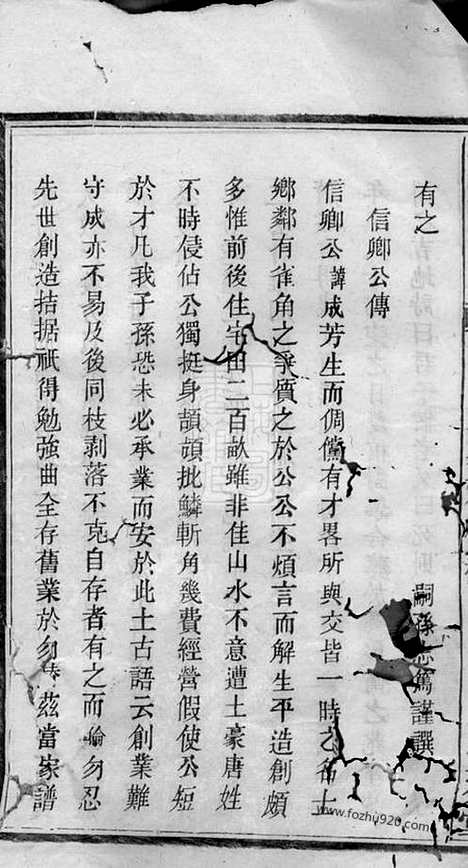 有之
信卿公傳　嗣孫志篤謹譔
信卿公諱成芳生而倜儻有才畧所與交皆一時之名士
鄉鄰有雀角之爭質之於公公不煩言而解生平造創頗
多惟前後住宅田二百畝雖非佳山水不意遭土豪唐姓
不時侵佔公獨挺身頡頏批鱗斬角幾費經營假使公短
於才凢我子孫恐未必承業而安於此土古語云創業難
守成亦不易及後同枝剥落不克自存者有之而倫勿忍
先世創造拮据祇得勉強曲全存舊業於勿替茲當家譜
www.fozhu920.com